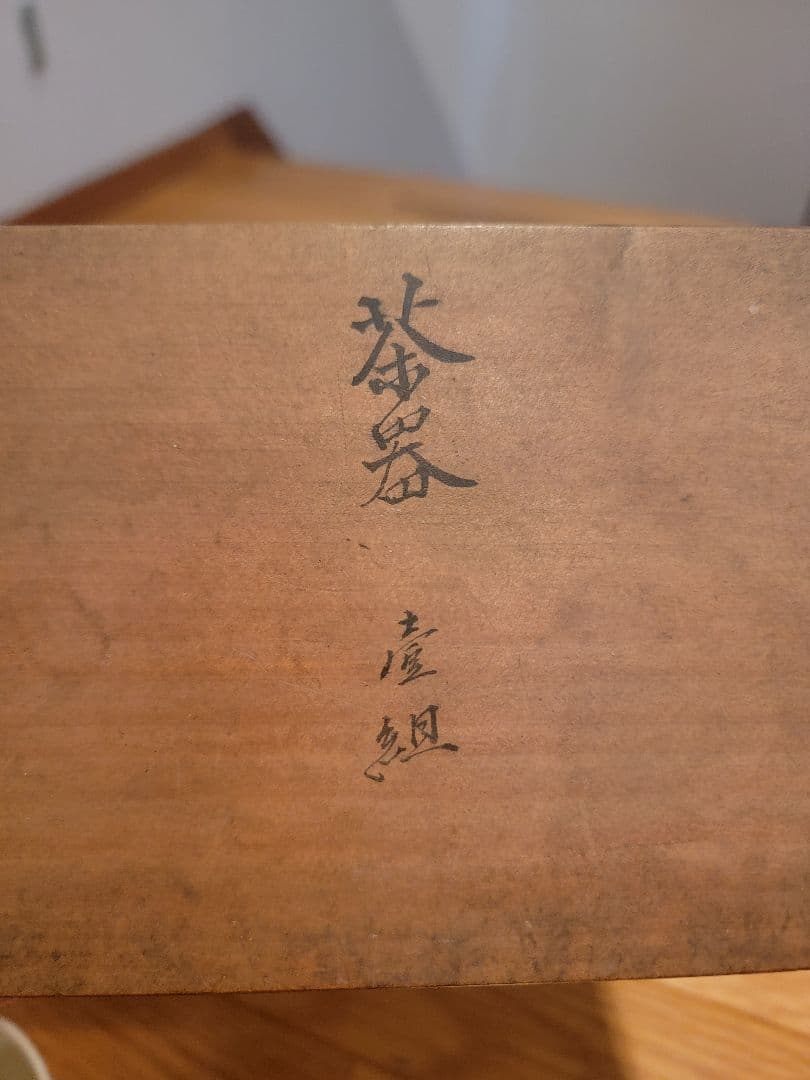 茶器
壹組